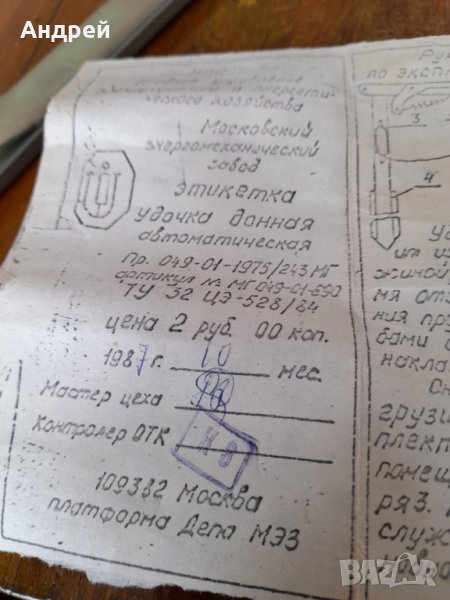 Андрей
хозяйства
Московский
энергомеханический
завод
этикетка
удочка донная
автоматическая
Пр. 049-01-1975/243 МГ
артикул № МГ 049-01-690
ТУ 32 ЦЭ-528/84
цена 2 руб. 00 коп.
1987 г. 10 мес.
Мастер цеха
Контролер ОТК
109382 Москва
платформа Депо МЭЗ
Ру
по экспл
3
4
Уд
жиной
мя отз
ния пру
бами
накла
Сн
грузи
плект
помещ
ряз.
служ
Bazar.bg